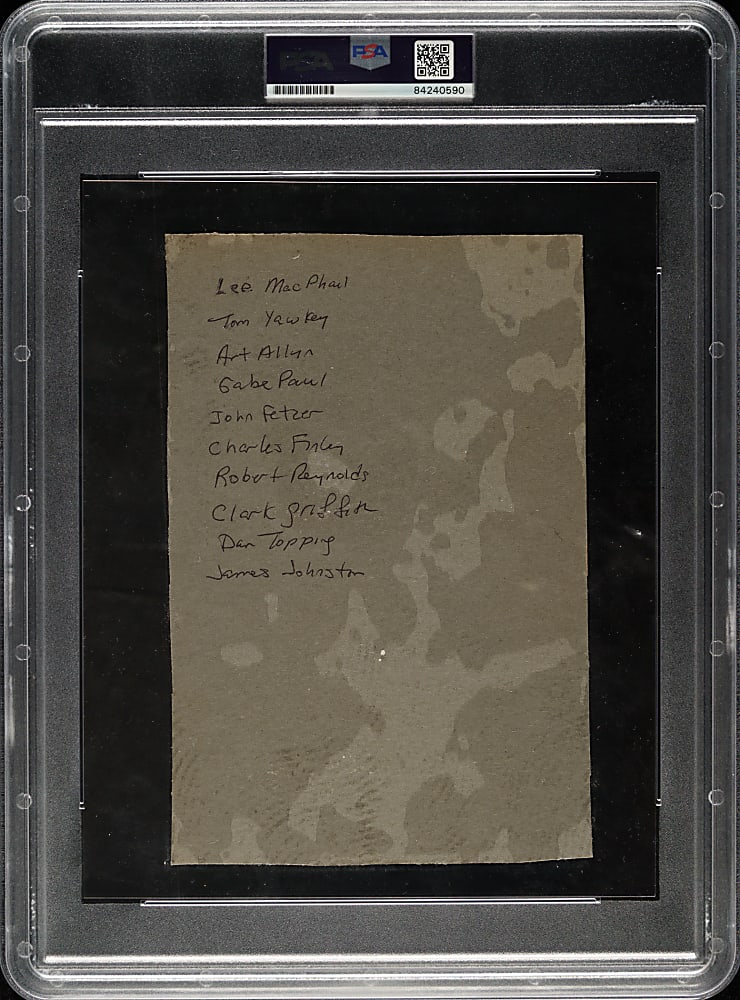 PSA
84240590
Lee MacPhail
Tom Yawkey
Art Allyn
Gabe Paul
John Fetzer
Charles Finley
Robert Reynolds
Clark Griffith
Dan Topping
James Johnston